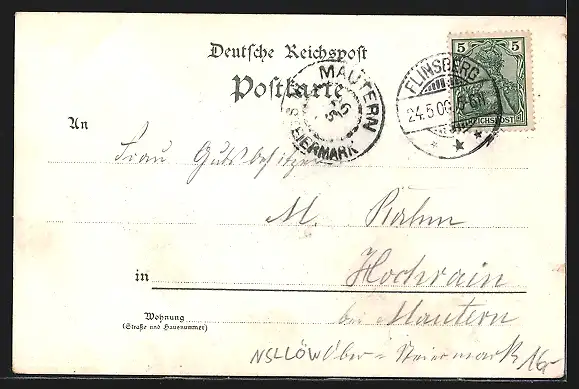 Deutsche Reichspost
Postkarte
MAUTERN
STEIERMARK
FLINSBERG
24.5.00
5 5
REICHSPOST
An
Frau Gutsbesitzer
M. Rahm
in Hochrain
bei Mautern
Wohnung
(Straße und Hausnummer)
Ober-Steiermark
16-